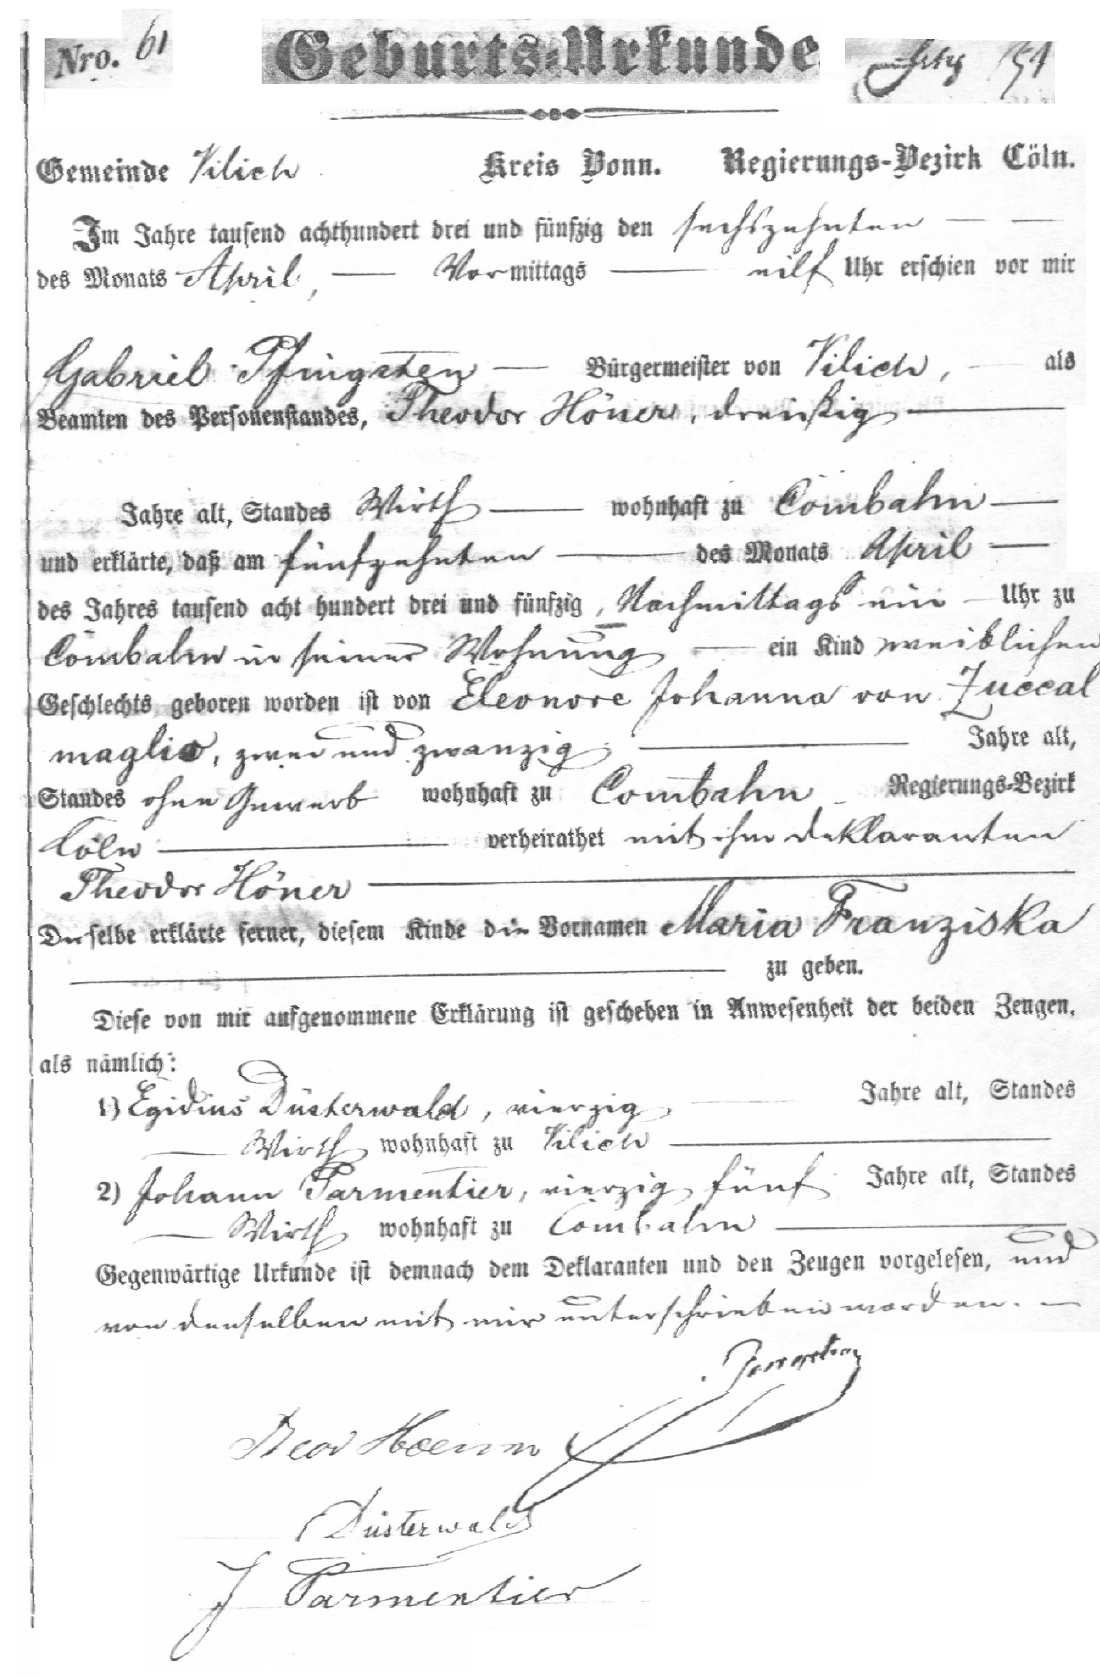 Nro. 61
Geburts-Urkunde
Gemeinde Vilich Kreis Bonn. Regierungs-Bezirk Cöln.
Im Jahre tausend achthundert drei und fünfzig den sechszehnten
des Monats April, Vormittags eilf Uhr erschien vor mir
Gabriel Pfingsten Bürgermeister von Vilich, als
Beamten des Personenstandes, Theodor Höner, dreißig
Jahre alt, Standes Wirth wohnhaft zu Combahn
und erklärte, daß am fünfzehnten des Monats April
des Jahres tausend acht hundert drei und fünfzig, Nachmittags ein Uhr zu
Combahn in seiner Wohnung ein Kind weiblichen
Geschlechts geboren worden ist von Eleonore Johanna von Zuccal
maglio, zwei und zwanzig Jahre alt,
Standes ohne Gewerb wohnhaft zu Combahn Regierungs-Bezirk
Cöln verheirathet mit ihm Deklaranten
Theodor Höner
Derselbe erklärte ferner, diesem Kinde die Vornamen Maria Franziska
zu geben.
Diese von mir aufgenommene Erklärung ist geschehen in Anwesenheit der beiden Zeugen,
als nämlich:
1) Egidius Düsterwald, vierzig Jahre alt, Standes
Wirth wohnhaft zu Vilich
2) Johann Parmentier, vierzig fünf Jahre alt, Standes
Wirth wohnhaft zu Combahn
Gegenwärtige Urkunde ist demnach dem Deklaranten und den Zeugen vorgelesen, und
von denselben mit mir unterschrieben worden.
Düsterwald
J Parmentier